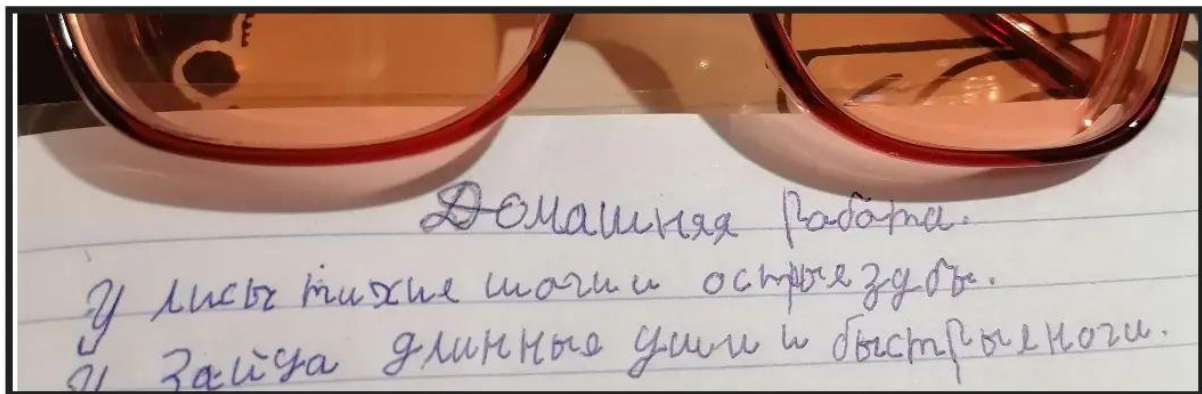 Домашняя работа.
У лисы тихие шаги и острые зубы.
У зайца длинные уши и быстрые ноги.